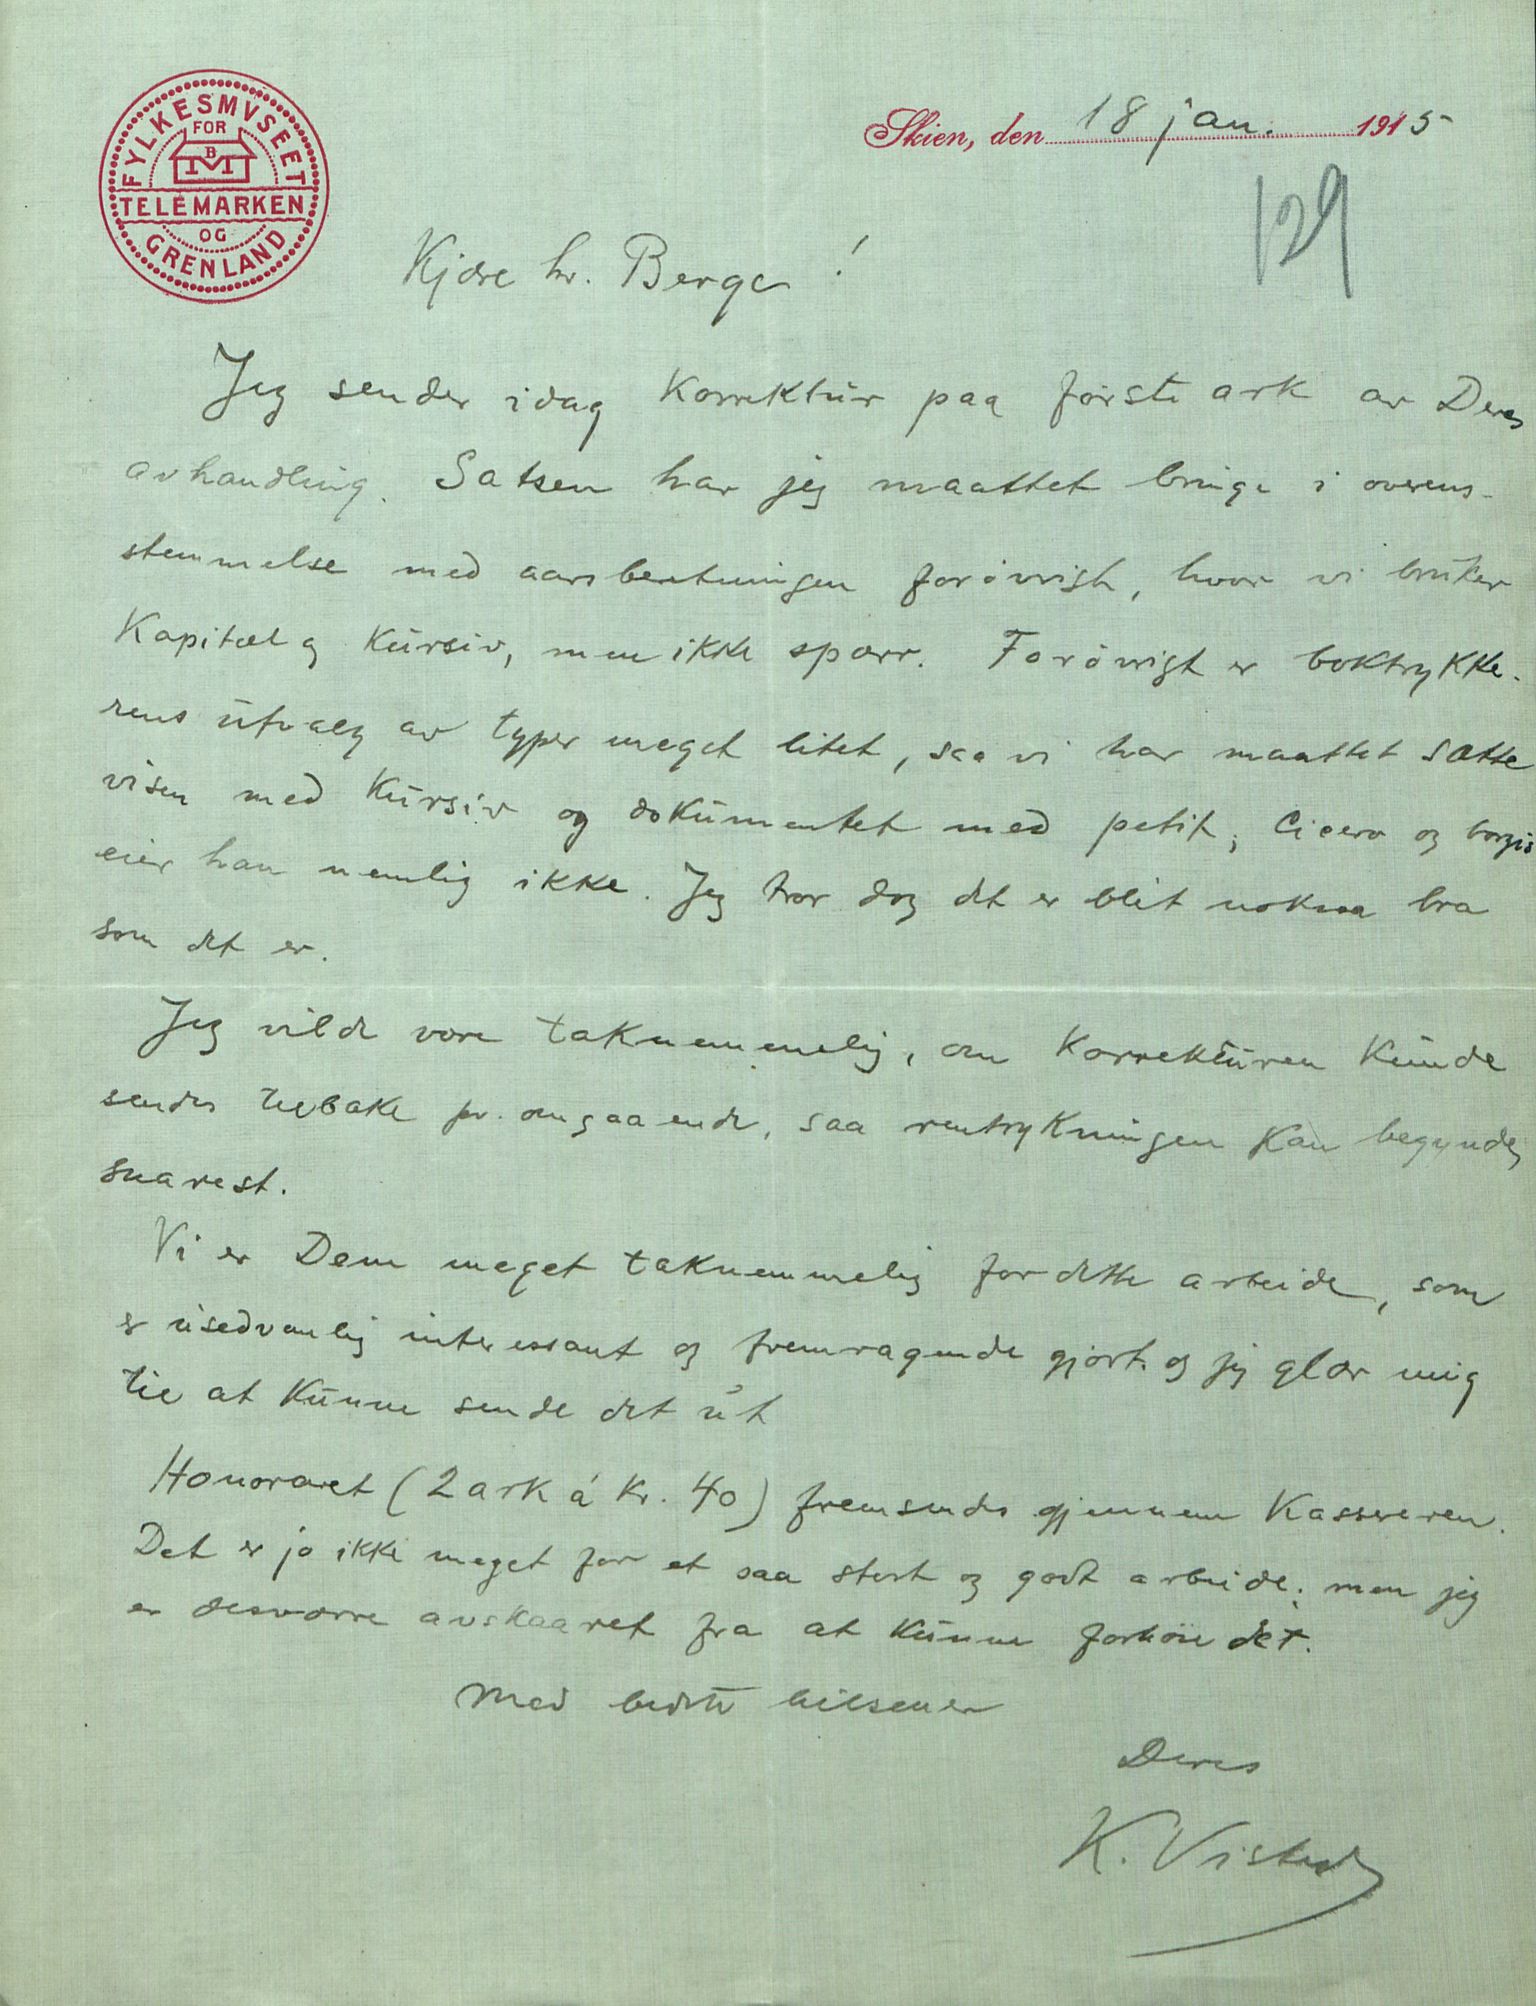 FYLKESMVSEET
FOR
BM
TELEMARKEN
OG
GRENLAND
Skien, den 18 jan. 1915
129
Kjære hr. Berge!
Jeg sender idag korrektur paa første ark av Deres
avhandling. Satsen har jeg maattet bringe i overens-
stemmelse med aarsberetningen forøvrigt, hvor vi bruker
Kapitæl og kursiv, men ikke spærr. Forøvrigt er boktrykke-
rens utvalg av typer meget litet, saa vi har maattet sætte
visen med kursiv og dokumentet med petit; Cicero og borgis
eier han nemlig ikke. Jeg tror dog det er blit noksaa bra
som det er.
Jeg vilde være taknemmelig, om korrekturen kunde
sendes tilbake pr. omgaaende, saa rentrykningen kan begyndes
snarest.
Vi er Dem meget taknemmelig for dette arbeide, som
er usedvanlig interessant og fremragende gjort. og jeg glær mig
til at kunne sende det ut
Honoraret (2 ark á kr. 40) fremsendes gjennem kassereren.
Det er jo ikke meget for et saa stort og godt arbeide; men jeg
er desværre avskaaret fra at kunne forhöie det.
Med bedste hilsener
Deres
K. Visted